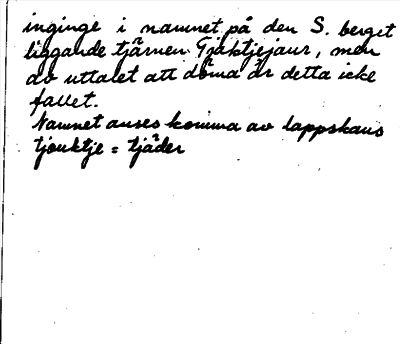 inginge i namnet på den S. berget
liggande tjärnen Tjäktjejaur, men
av uttalet att döma är detta icke
fallet.
Namnet anses komma av lappskans
tjouktje = tjäder